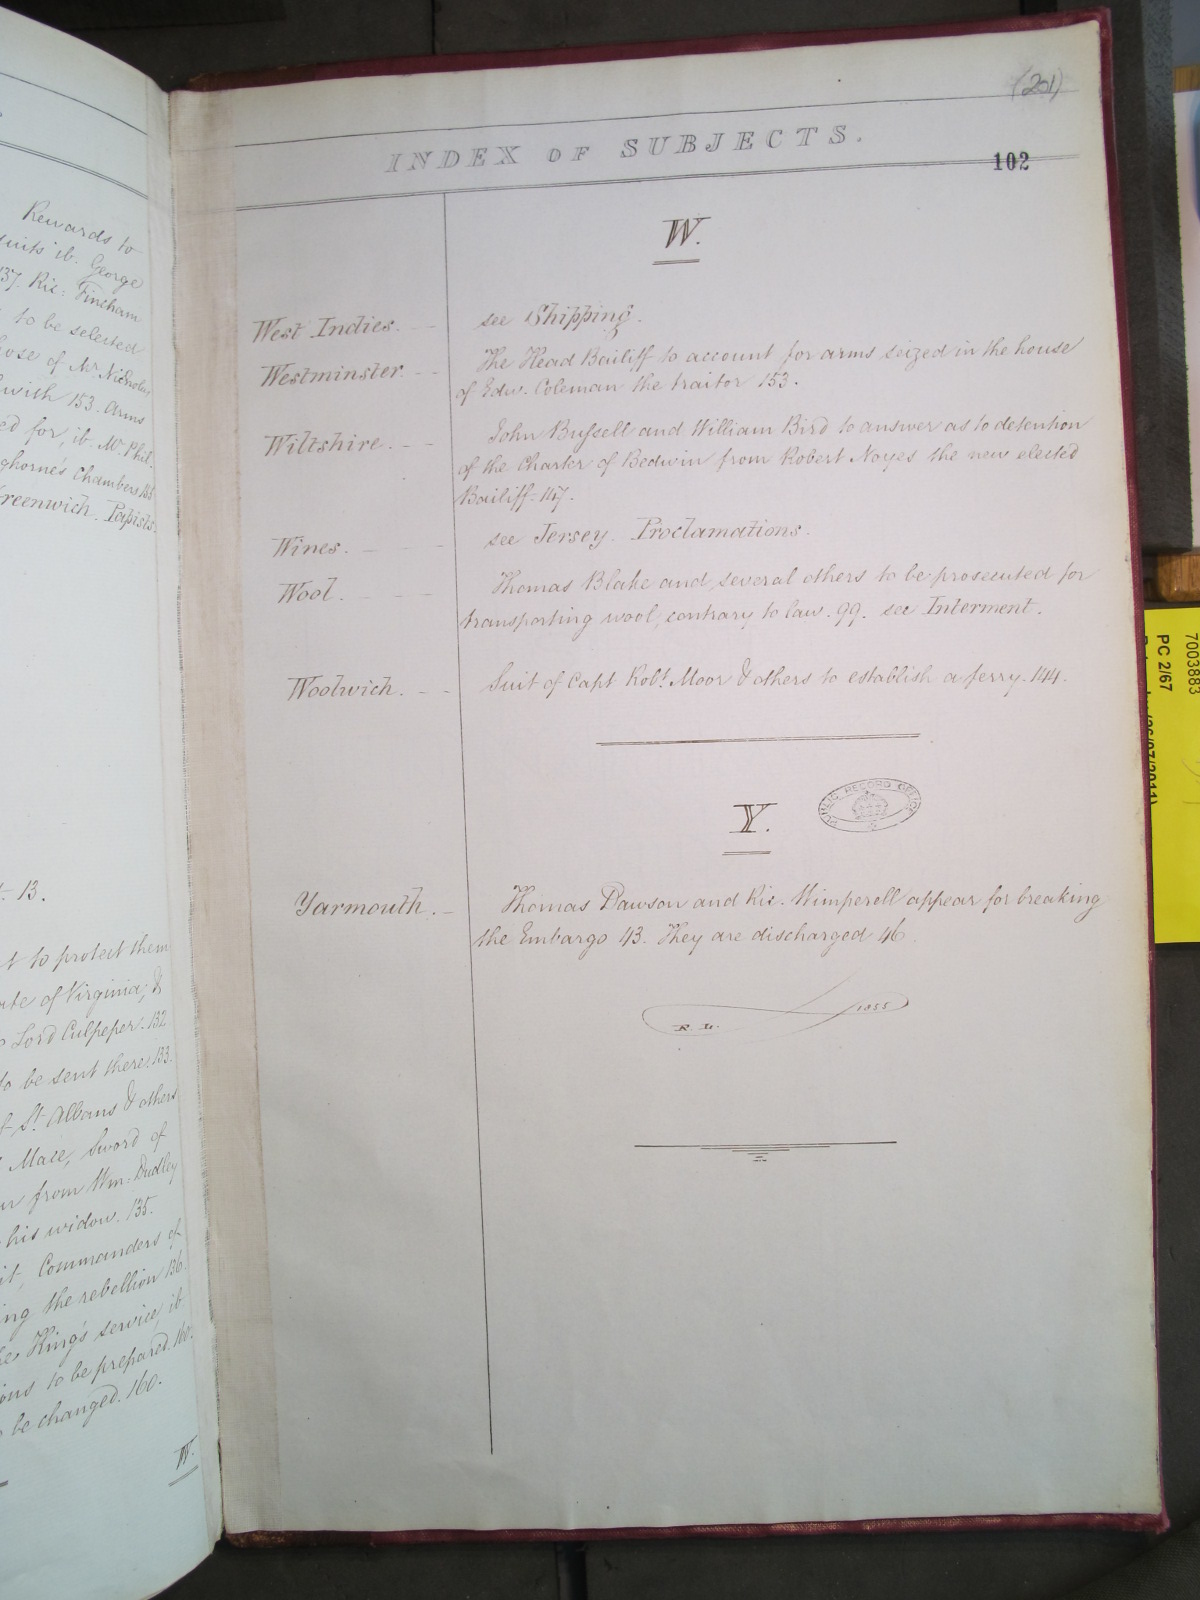 Rewards to
suits ib. George
137. Ric: Fincham
to be selected
house of Mr. Nicholas
with 153. Arms
ed for, ib. Mr. Phil.
ghorne's Chambers 155
Greenwich. Papists.
13.
t to protect them
ate of Virginia; &
Lord Culpeper. 132
to be sent there; 133.
of St. Albans & others
Mace, Sword of
from Wm: Dudley
his widow. 135.
it, Commanders of
ing the rebellion 136.
the King's service, ib.
ions to be prepared. 160.
be changed. 160.
W.
(201)
INDEX OF SUBJECTS.
102
W.
West Indies. see Shipping.
Westminster. The Head Bailiff to account for arms seized in the house
of Edw. Coleman the traitor 153.
Wiltshire. John Bussell and William Bird to answer as to detention
of the Charter of Bedwin from Robert Noyes the new elected
Bailiff. 117.
Wines. see Jersey. Proclamations.
Wool. Thomas Blake and several others to be prosecuted for
transporting wool, contrary to law. 99. see Interment.
Woolwich. Suit of Capt Robt. Moor & others to establish a ferry. 144.
Y.
PUBLIC RECORD OFFICE
Yarmouth. Thomas Dawson and Ric. Wimperell appear for breaking
the Embargo 43. They are discharged 46.
R. L. 1855
7003883
PC 2/67